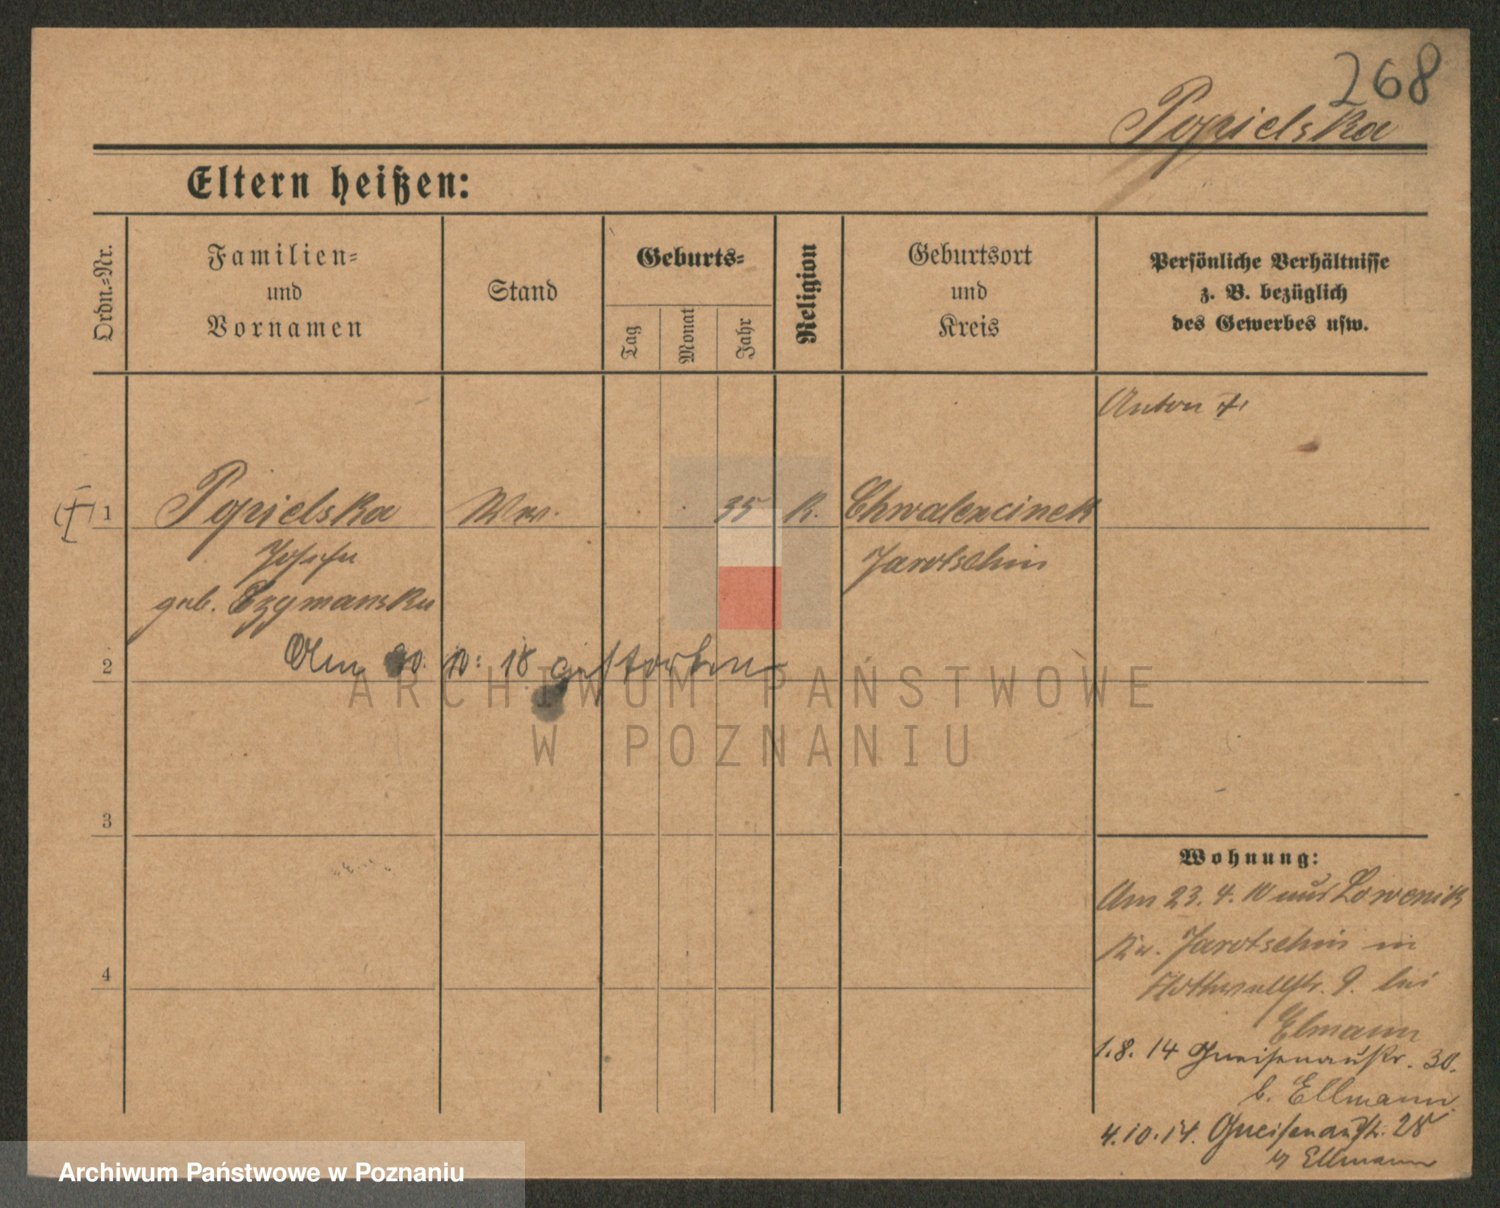 268
Popielska
Eltern heißen:
Ordn.-Nr.
Familien-
und
Vornamen
Stand
Geburts-
Tag
Monat
Jahr
Religion
Geburtsort
und
Kreis
Persönliche Verhältnisse
z. B. bezüglich
des Gewerbes usw.
Anton †
1 Popielska Ww. 35 k. Chwalencinek
Josefa Jarotschin
geb. Czymanska
2 Am 30. 10. 18 gestorben
ARCHIWUM PAŃSTWOWE
W POZNANIU
3
Wohnung:
Am 23. 4. 10 aus
Kr. Jarotschin in
4
9. bei
Elmann
1.8.14 Gneisenaustr. 30.
b. Ellmann
4.10.14. Gneisenaustr. 28
Ellmann
Archiwum Państwowe w Poznaniu